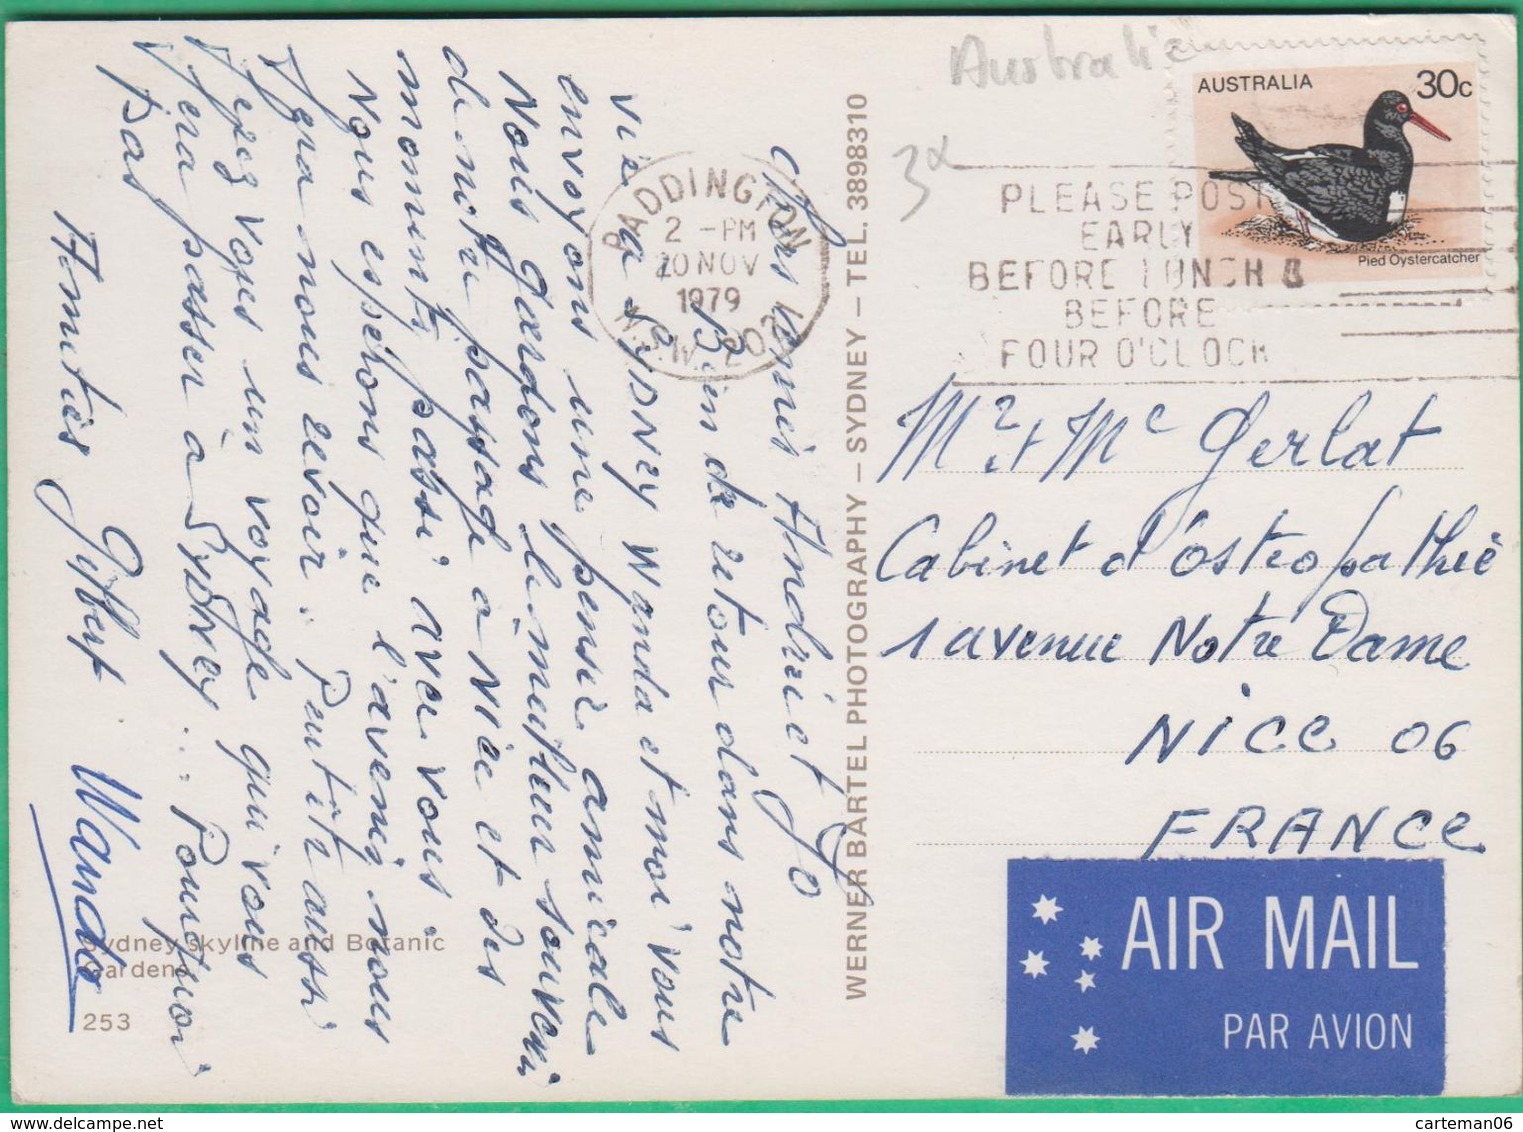 Chers Amis Andrée et Jo
Bien de retour dans notre
vie a SYDNEY Wanda et moi vous
envoyons une pensée amicale
Nous gardons le meilleur souvenir
de notre passage à Nice et des
moments passé avec vous.
Nous espérons que l'avenir nous
fera nous revoir. Peut être aussi
ferez vous un voyage qui vous
fera passer à SYDNEY... Pourquoi
pas
Amitiés Gilbert Wanda
Sydney skyline and Botanic
Gardens
253
WERNER BARTEL PHOTOGRAPHY – SYDNEY – TEL. 3898310
PADDINGTON
2 -PM
20 NOV
1979
N.S.W. 2021
Australie
3
PLEASE POST
EARLY
BEFORE LUNCH &
BEFORE
FOUR O'CLOCK
AUSTRALIA 30c
Pied Oystercatcher
Mr et Me Gerlat
Cabinet d'ostéopathie
1 avenue Notre Dame
NICE 06
FRANCE
AIR MAIL
PAR AVION
carteman06